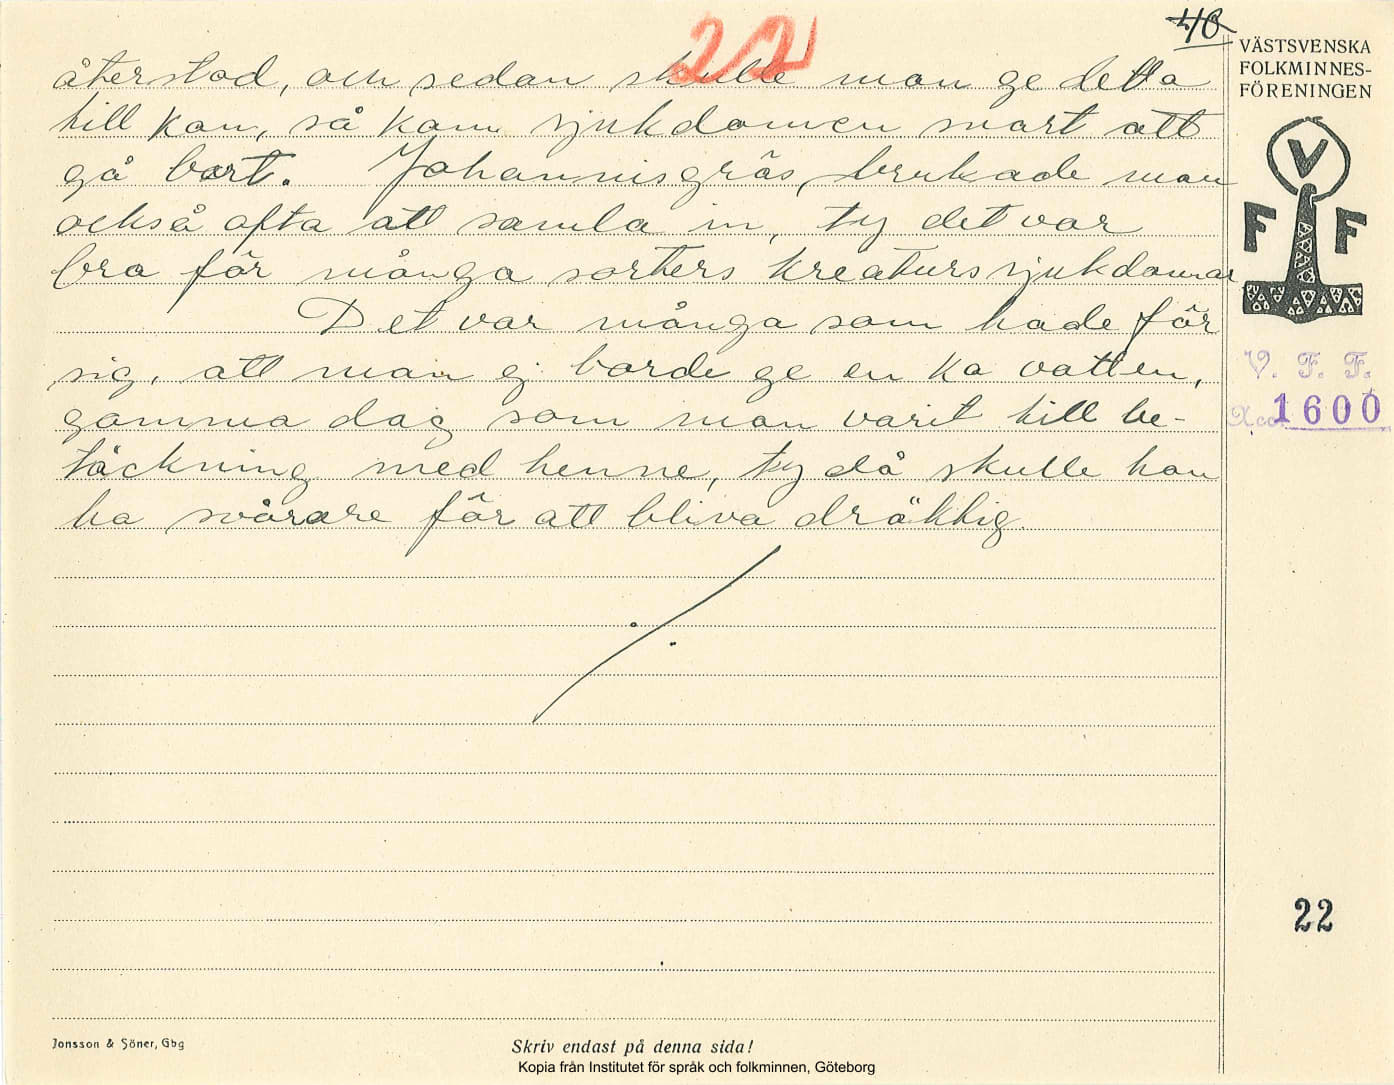 22
40
återstod, och sedan skulle man ge detta
till kon, så kom sjukdomen snart att
gå bort. Johannisgräs, brukade man
också ofta att samla in, ty det var
bra för många sorters kreaturssjukdomar
Det var många som hade för
sig, att man ej borde ge en ko vatten,
samma dag som man varit till be-
täckning med henne, ty då skulle hon
ha svårare för att bliva dräktig.
VÄSTSVENSKA
FOLKMINNES-
FÖRENINGEN
V
F F
V. F. F.
Acc. 1600
22
Jonsson & Söner, Gbg
Skriv endast på denna sida!
Kopia från Institutet för språk och folkminnen, Göteborg